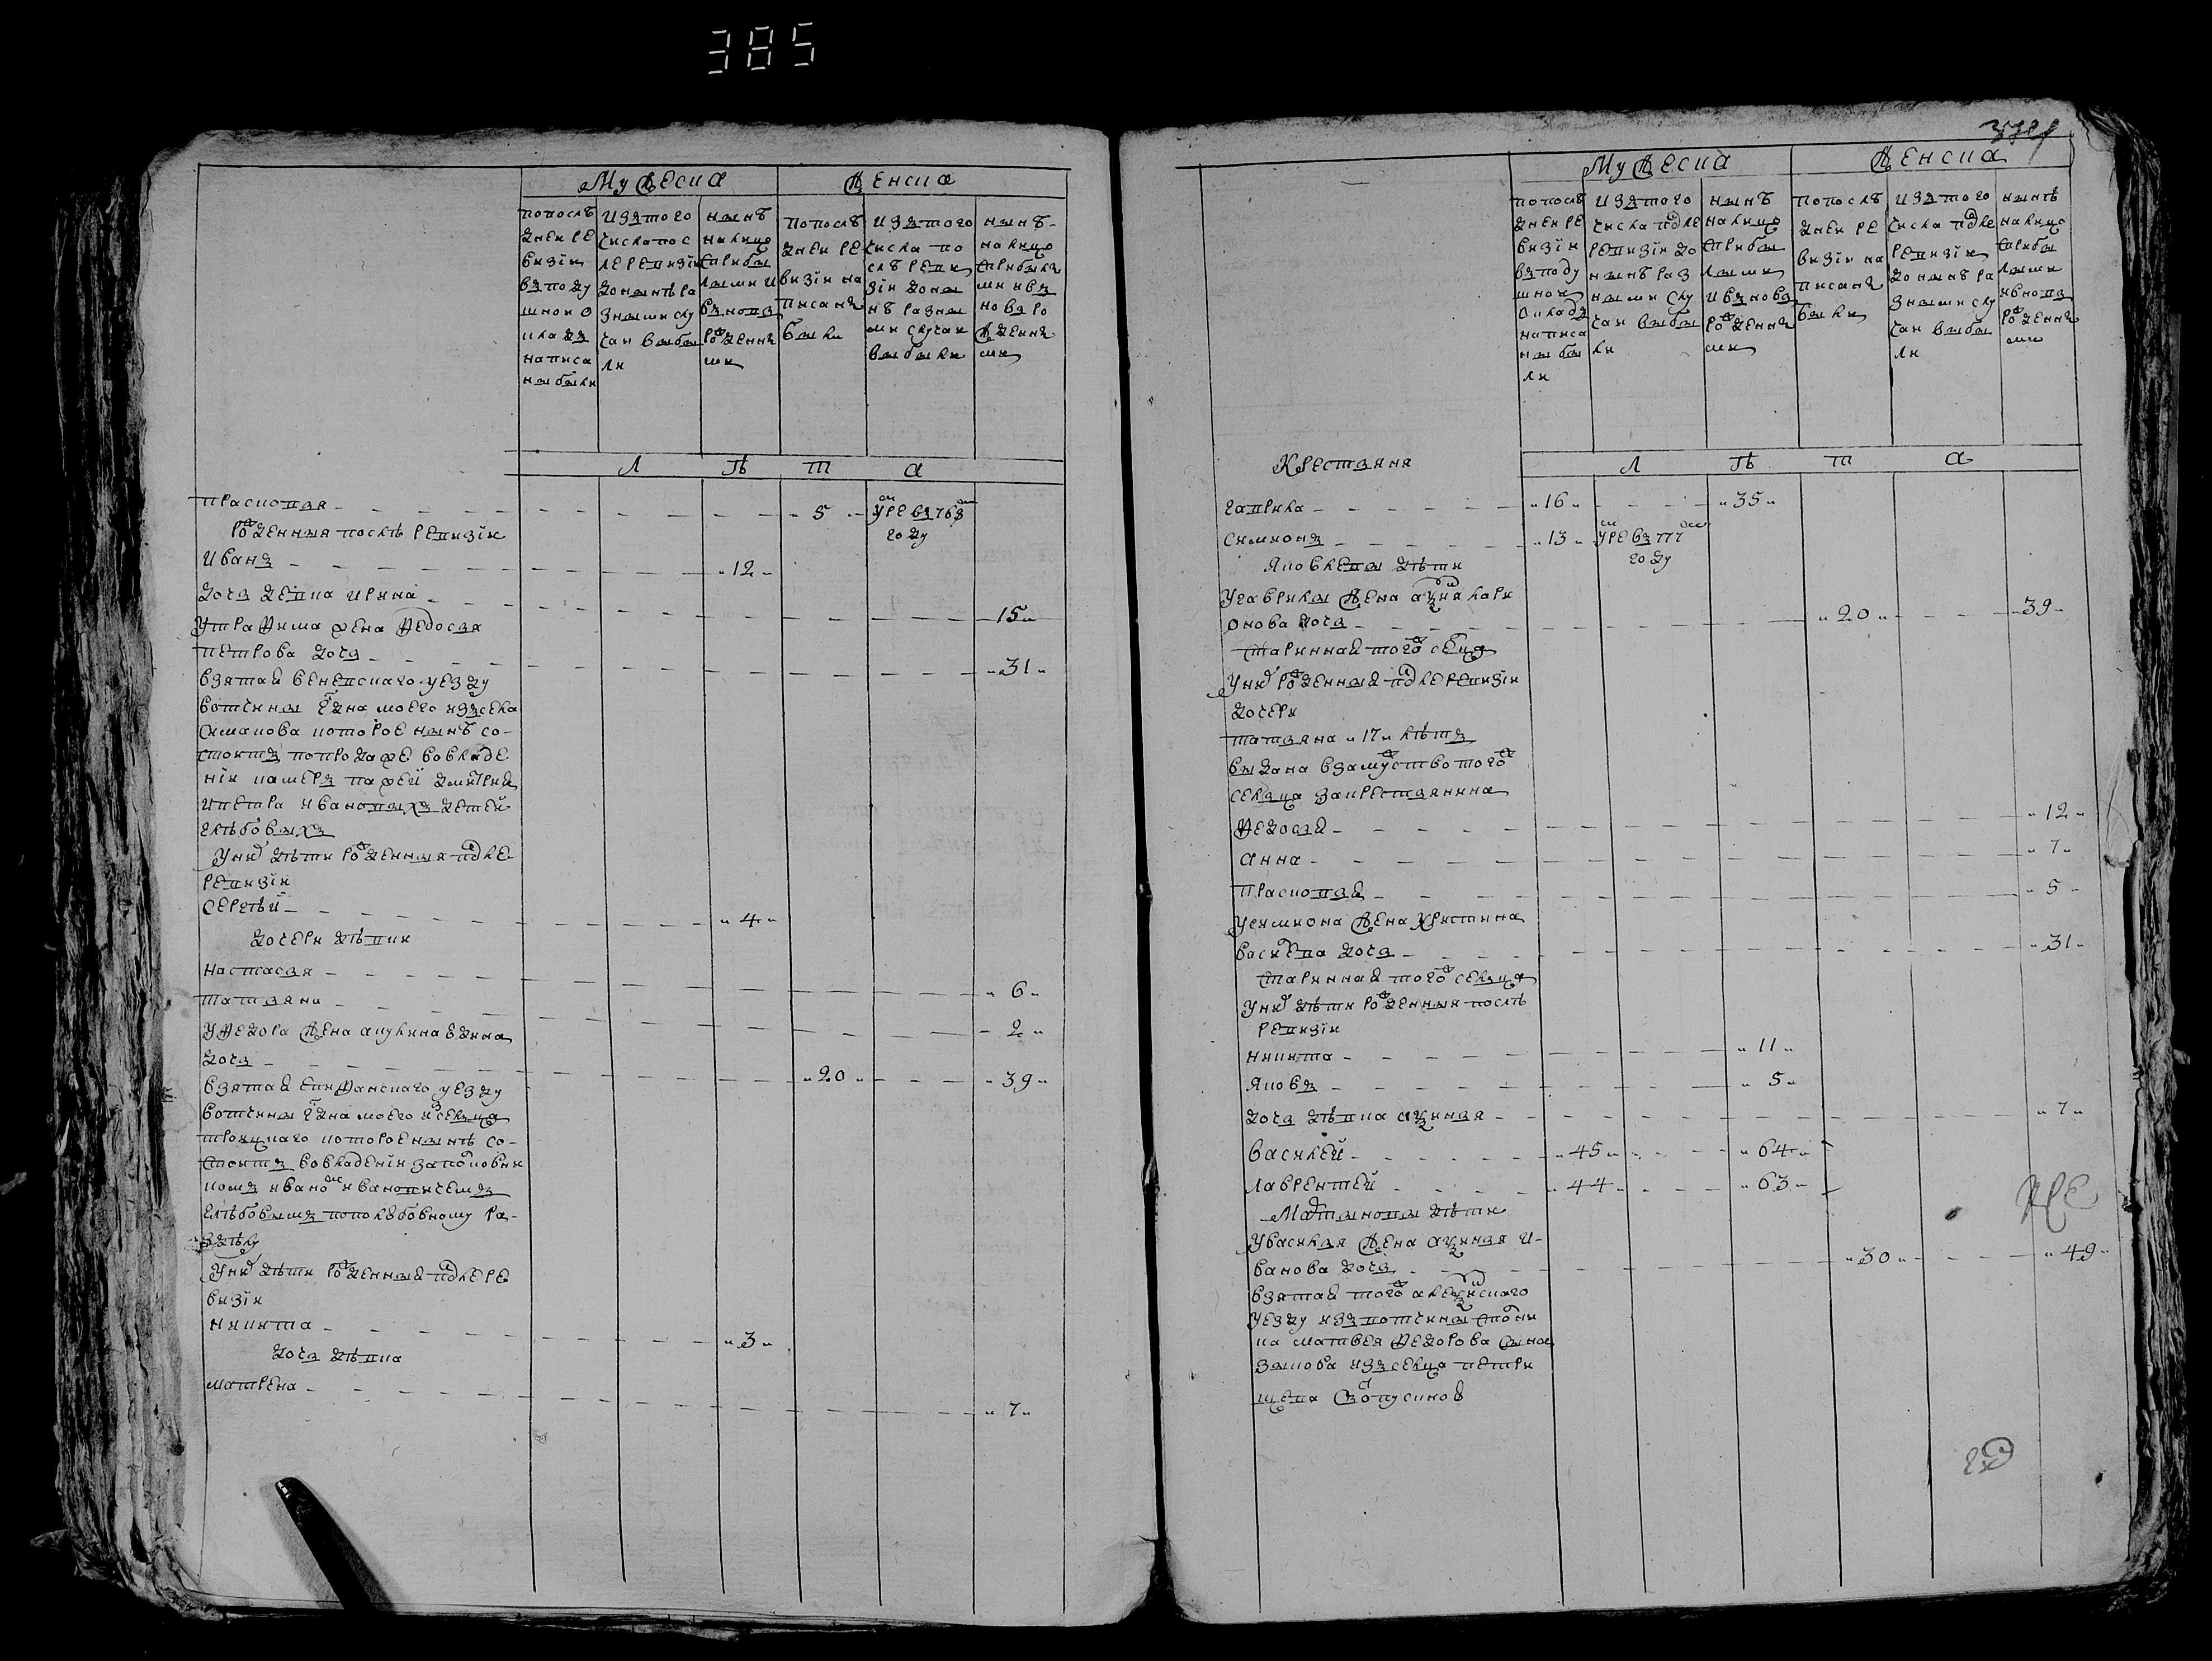 385
Мужеска
Женска
попослѣ
дней ре
визіи
въподу
шной о
кладъ
написа
ны были
изътого
числа пос
ле ревизіи
до нынѣ ра
зными слу
чаи выбы
ли
нынѣ
налицо
сприбы
лыми и
вьновь
рожденны
ми
попослѣ
дней ре
визіи на
писаны
были
изътого
числа по
слѣ реви
зіи доны
нѣ разны
ми случаи
выбыли
нынѣ
налицо
сприбылы
ми ивъ
новь ро
жденны
ми
Л ѣ т а
Прасковья 5 умре въ 763 м
году
рожденныя послѣ ревизіи
Иванъ 12
дочь девка Ирина 15
Утрафима жена Федосья
Петрова дочь 31
взятая Веневскаго уезду
вотчины Г̃дна моего изсела
Симанова которое нынѣ со-
стоитъ попродаже вовладе
ніи камеръ пажей Дмитрия
иПетра Ивановыхъ детей
Глѣбовыхъ
Уних дѣти рожденныя после
ревизіи
Сергѣй 4
дочери дѣвки
Настасья 6
Татьяна 2
УФедора жена Акулина Едина
дочь 20 39
взятая Епифанскаго уезду
вотчины Г̃дна моего изсельца
Троицкаго которое нынѣ со-
стоитъ вовладеніи заполковни
комъ Иваномъ Ивановичемъ
Глѣбовымъ пополюбовному ра-
здѣлу
Уних дѣти рожденныя после ре
визіи
Никита 3
дочь дѣвка
Матрена 7
Мужеска
Женска
попослѣ
дней ре
визіи
въподу
шной
окладъ
написа
ны бы
ли
изътого
числа после
ревизіи до
нынѣ раз
ными слу
чаи выбы
ли
нынѣ
налицо
сприбы
лыми
ивьновь
рожденны
ми
попослѣ
дней ре
визіи на
писаны
были
изътого
числа после
ревизіи
донынѣ ра
зными слу
чаи выбы
ли
нынѣ
налицо
сприбы
лыми
ивновь
рожденны
ми
Л ѣ т а
Крестьяня
Гаврила 16 35
Симионъ 13 умре въ 777 м
году
Яковлевы дѣти
Угаврилы жена Аѯинья Лари
онова дочь 20 39
старинная того сельца
Уних рожденныя после ревизіи
дочери
Татьяна 17 лѣтъ
выдана взамужство тогож
сельца закрестьянина
Федосья 12
Анна 7
Прасковья 5
Усимиона жена Христина
Василева дочь 31
старинная тогож сельца
Уних дѣти рожденныя послѣ
ревизіи
Никита 11
Яковъ 5
дочь дѣвка Аѯинья 7
Василей 45 64
Лаврентей 44 63
Мартыновы дѣти
Увасилья жена Аѯинья И-
ванова дочь 30 49
взятая тогож Алеѯинскаго
уезду извотчины столни
ка Матвея Федорова сына
изсельца Петри
щева